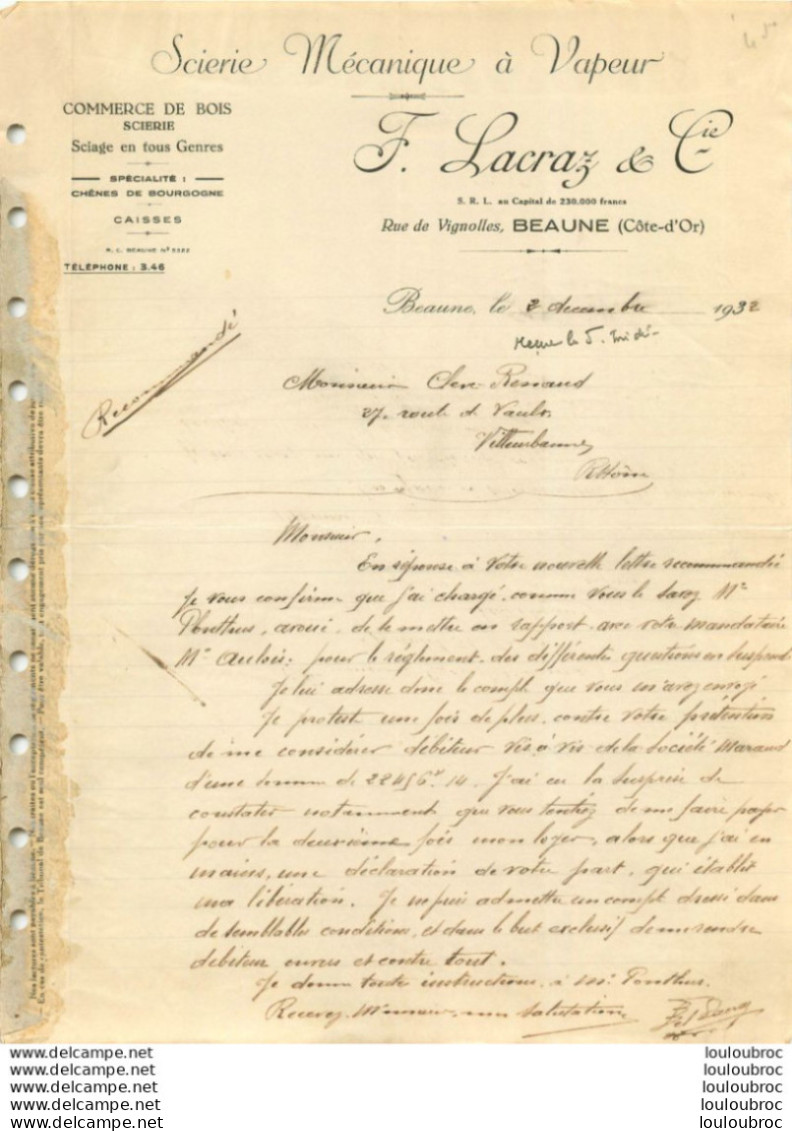 Scierie Mécanique à Vapeur
COMMERCE DE BOIS
SCIERIE
Sciage en tous Genres
SPÉCIALITÉ :
CHÊNES DE BOURGOGNE
CAISSES
R. C. BEAUNE Nº
TÉLÉPHONE : 3.46
F. Lacraz & Cie
S. R. L. au Capital de 230.000 francs
Rue de Vignolles, BEAUNE (Côte-d'Or)
Beaune, le 2 decembre 1932
reçue le 5.
Recommandé
Monsieur Clerc Renaud
27 route de Vaulx
Villeurbanne
Rhône
Monsieur,
En réponse à votre nouvelle lettre recommandée
je vous confirme que j'ai chargé, comme vous le savez Me
Ponthus, avoué, de se mettre en rapport avec votre mandataire
Me Aulois, pour le règlement des différentes questions en suspend
Je lui adresse donc le compte que vous m'avez envoyé
Je proteste une fois de plus, contre votre prétention
de me considérer débiteur vis à vis de la Société Marand
d'une somme de 22456f.14. J'ai eu la surprise de
constater notamment que vous tentez de me faire payer
pour la deuxième fois mon loyer, alors que j'ai en
mains, une déclaration de votre part, qui établit
ma libération. Je ne puis admettre un compte dressé dans
de semblables conditions, et dans le but exclusif de me rendre
débiteur envers et contre tout.
Je donne toute instructions à Me Ponthus.
Recevez, Monsieur, mes salutations
www.delcampe.net louloubroc
www.delcampe.net louloubroc
www.delcampe.net louloubroc
www.delcampe.net louloubroc
www.delcampe.net louloubroc